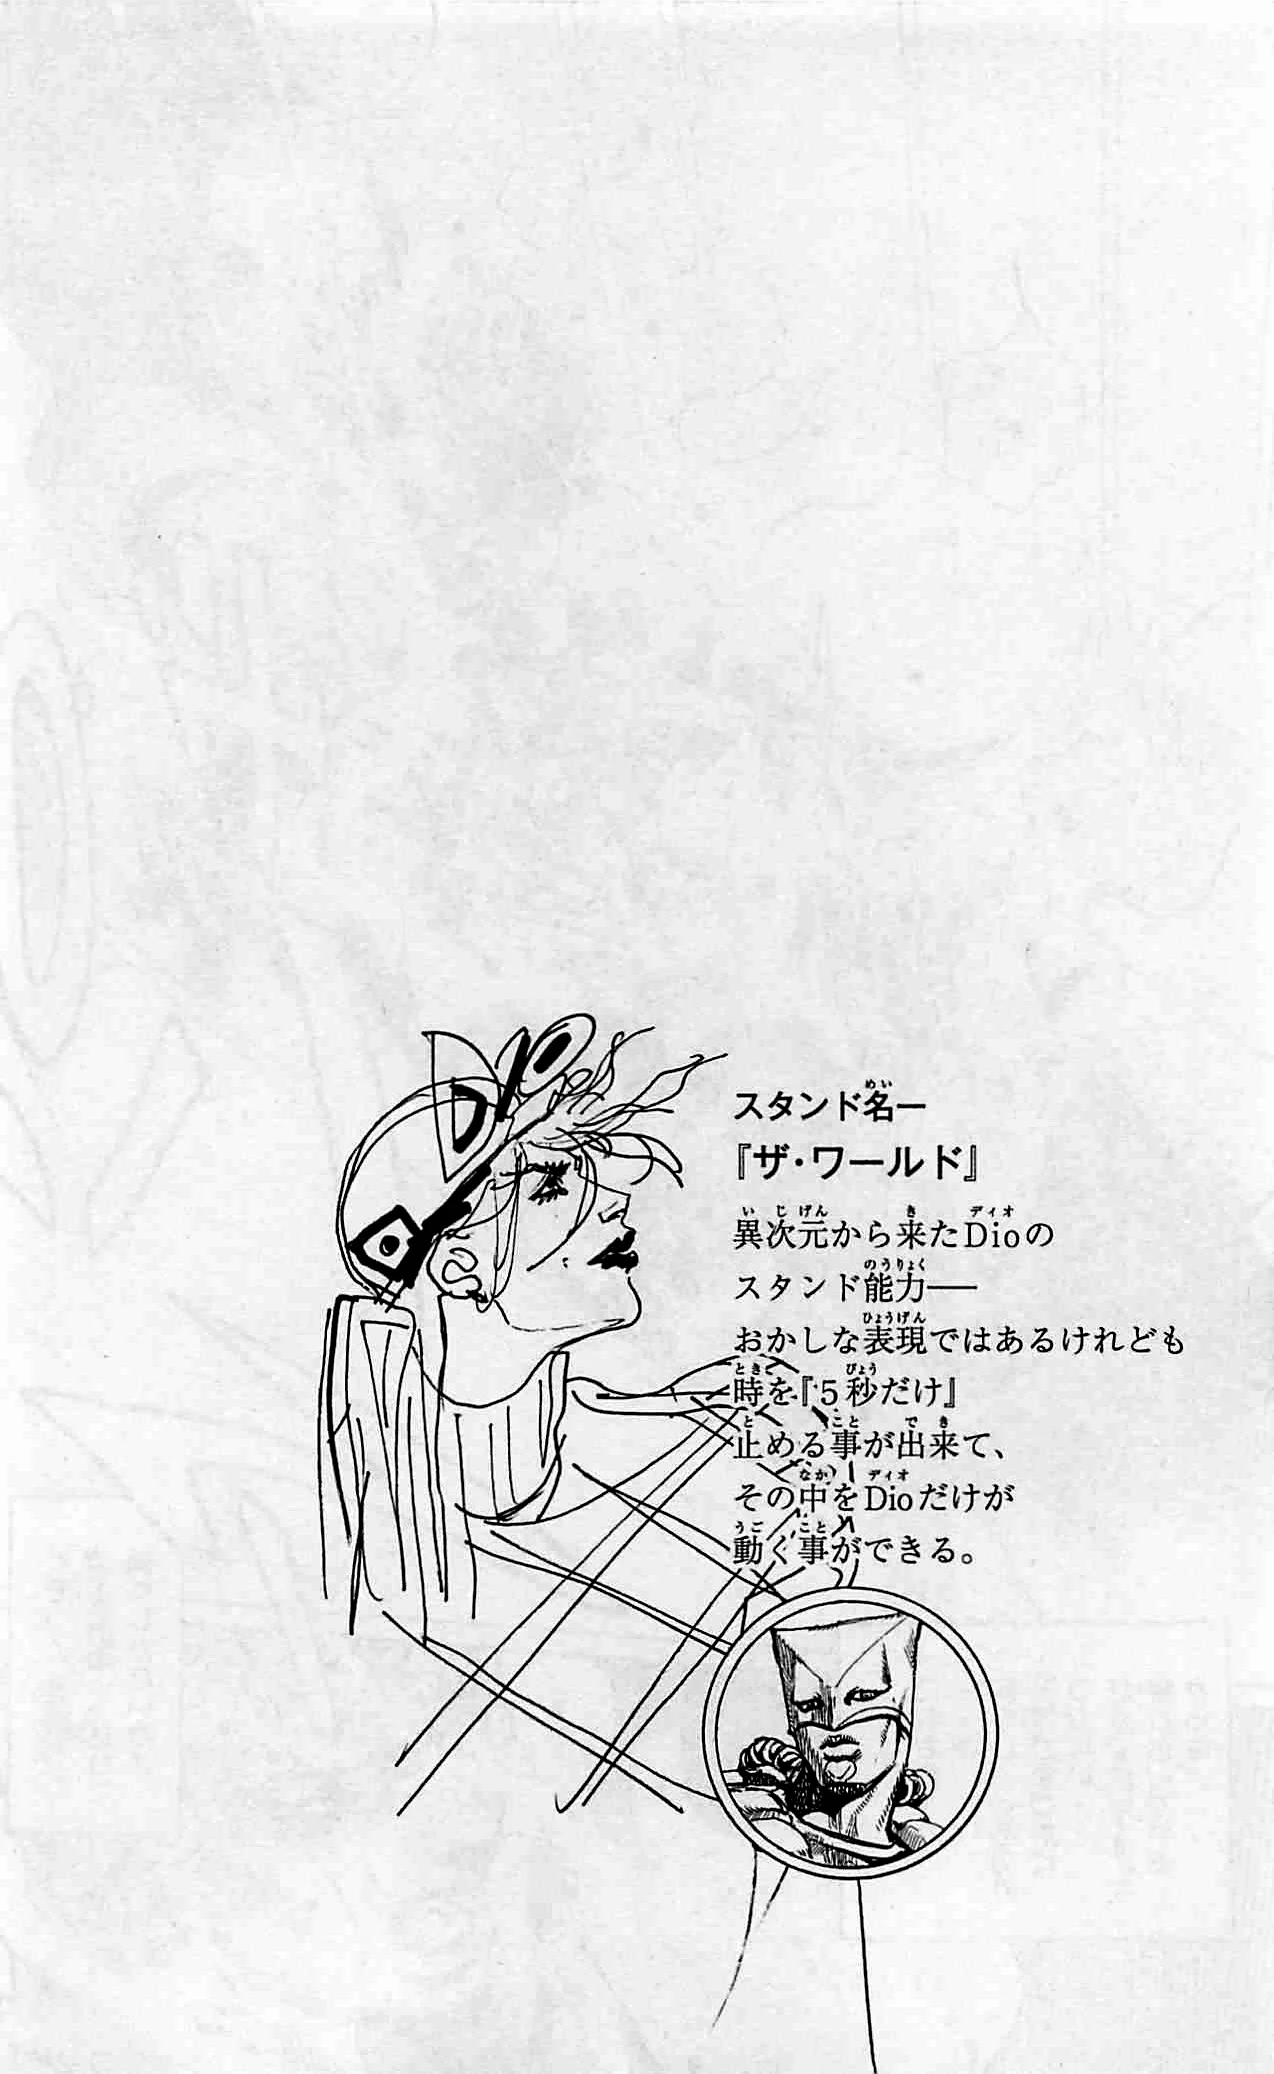 DIO
スタンド名―
『ザ・ワールド』
異次元から来たDioの
スタンド能力――
おかしな表現ではあるけれども
時を『5秒だけ』
止める事が出来て、
その中をDioだけが
動く事ができる。